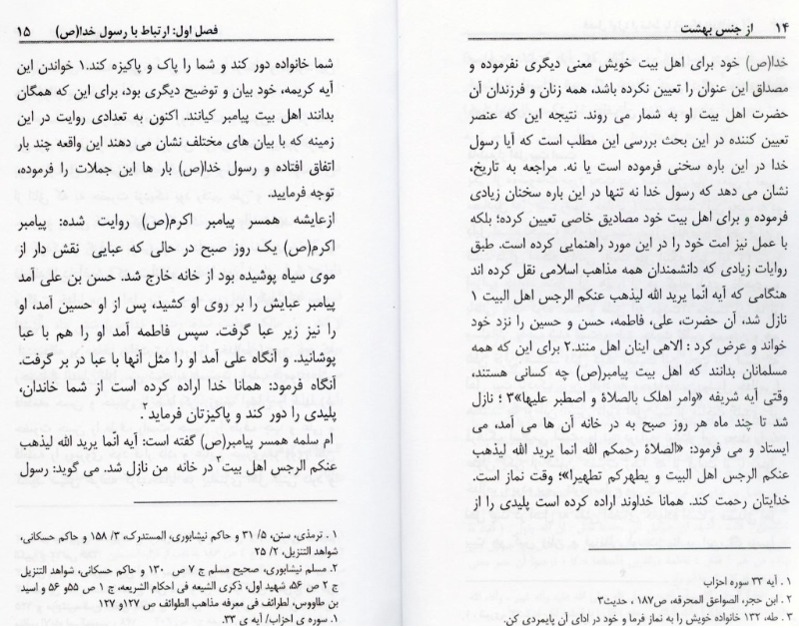 ۱۴ از جنس بهشت
خدا(ص) خود برای اهل بیت خویش معنی دیگری نفرموده و
مصداق این عنوان را تعیین نکرده باشد، همه زنان و فرزندان آن
حضرت اهل بیت او به شمار می روند. نتیجه این که عنصر
تعیین کننده در این بحث بررسی این مطلب است که آیا رسول
خدا در این باره سخنی فرموده است یا نه. مراجعه به تاریخ،
نشان می دهد که رسول خدا نه تنها در این باره سخنان زیادی
فرموده و برای اهل بیت خود مصادیق خاصی تعیین کرده؛ بلکه
با عمل نیز امت خود را در این مورد راهنمایی کرده است. طبق
روایات زیادی که دانشمندان همه مذاهب اسلامی نقل کرده اند
هنگامی که آیه انّما یرید الله لیذهب عنکم الرجس اهل البیت ۱
نازل شد، آن حضرت، علی، فاطمه، حسن و حسین را نزد خود
خواند و عرض کرد : الاهی اینان اهل منند.۲ برای این که همه
مسلمانان بدانند که اهل بیت پیامبر(ص) چه کسانی هستند،
وقتی آیه شریفه «وامر اهلک بالصلاة و اصطبر علیها»۳ ؛ نازل
شد تا چند ماه هر روز صبح به در خانه آن ها می آمد، می
ایستاد و می فرمود: «الصلاة رحمکم الله انما یرید الله لیذهب
عنکم الرجس اهل البیت و یطهرکم تطهیرا»؛ وقت نماز است.
خدایتان رحمت کند. همانا خداوند اراده کرده است پلیدی را از
۱ . آیه ۳۳ سوره احزاب
۲ . ابن حجر، الصواعق المحرقه، ص۱۸۷ ، حدیث۳
۳ . طه، ۱۳۲ خانواده خویش را به نماز فرما و خود در ادای آن پایمردی کن.
فصل اول: ارتباط با رسول خدا(ص) ۱۵
شما خانواده دور کند و شما را پاک و پاکیزه کند.۱ خواندن این
آیه کریمه، خود بیان و توضیح دیگری بود، برای این که همگان
بدانند اهل بیت پیامبر کیانند. اکنون به تعدادی روایت در این
زمینه که با بیان های مختلف نشان می دهند این واقعه چند بار
اتفاق افتاده و رسول خدا(ص) بار ها این جملات را فرموده،
توجه فرمایید.
ازعایشه همسر پیامبر اکرم(ص) روایت شده: پیامبر
اکرم(ص) یک روز صبح در حالی که عبایی نقش دار از
موی سیاه پوشیده بود از خانه خارج شد. حسن بن علی آمد
پیامبر عبایش را بر روی او کشید، پس از او حسین آمد، او
را نیز زیر عبا گرفت. سپس فاطمه آمد او را هم با عبا
پوشانید. و آنگاه علی آمد او را مثل آنها با عبا در بر گرفت.
آنگاه فرمود: همانا خدا اراده کرده است از شما خاندان،
پلیدی را دور کند و پاکیزتان فرماید.۲
ام سلمه همسر پیامبر(ص) گفته است: آیه انّما یرید الله لیذهب
عنکم الرجس اهل بیت۳ در خانه من نازل شد. می گوید: رسول
۱ . ترمذی، سنن، ۵/ ۳۱ و حاکم نیشابوری، المستدرک، ۳/ ۱۵۸ و حاکم حسکانی،
شواهد التنزیل، ۲/ ۲۵
۲. مسلم نیشابوری، صحیح مسلم ج ۷ ص ۱۳۰ و حاکم حسکانی، شواهد التنزیل
ج ۲ ص ۵۶، شهید اول، ذکری الشیعه فی احکام الشریعه، ج ۱ ص ۵۵و ۵۶ و اسید
بن طاووس، لطرائف فی معرفه مذاهب الطوائف ص ۱۲۷و ۱۲۷
۱. سوره ی احزاب/ آیه ی ۳۳.